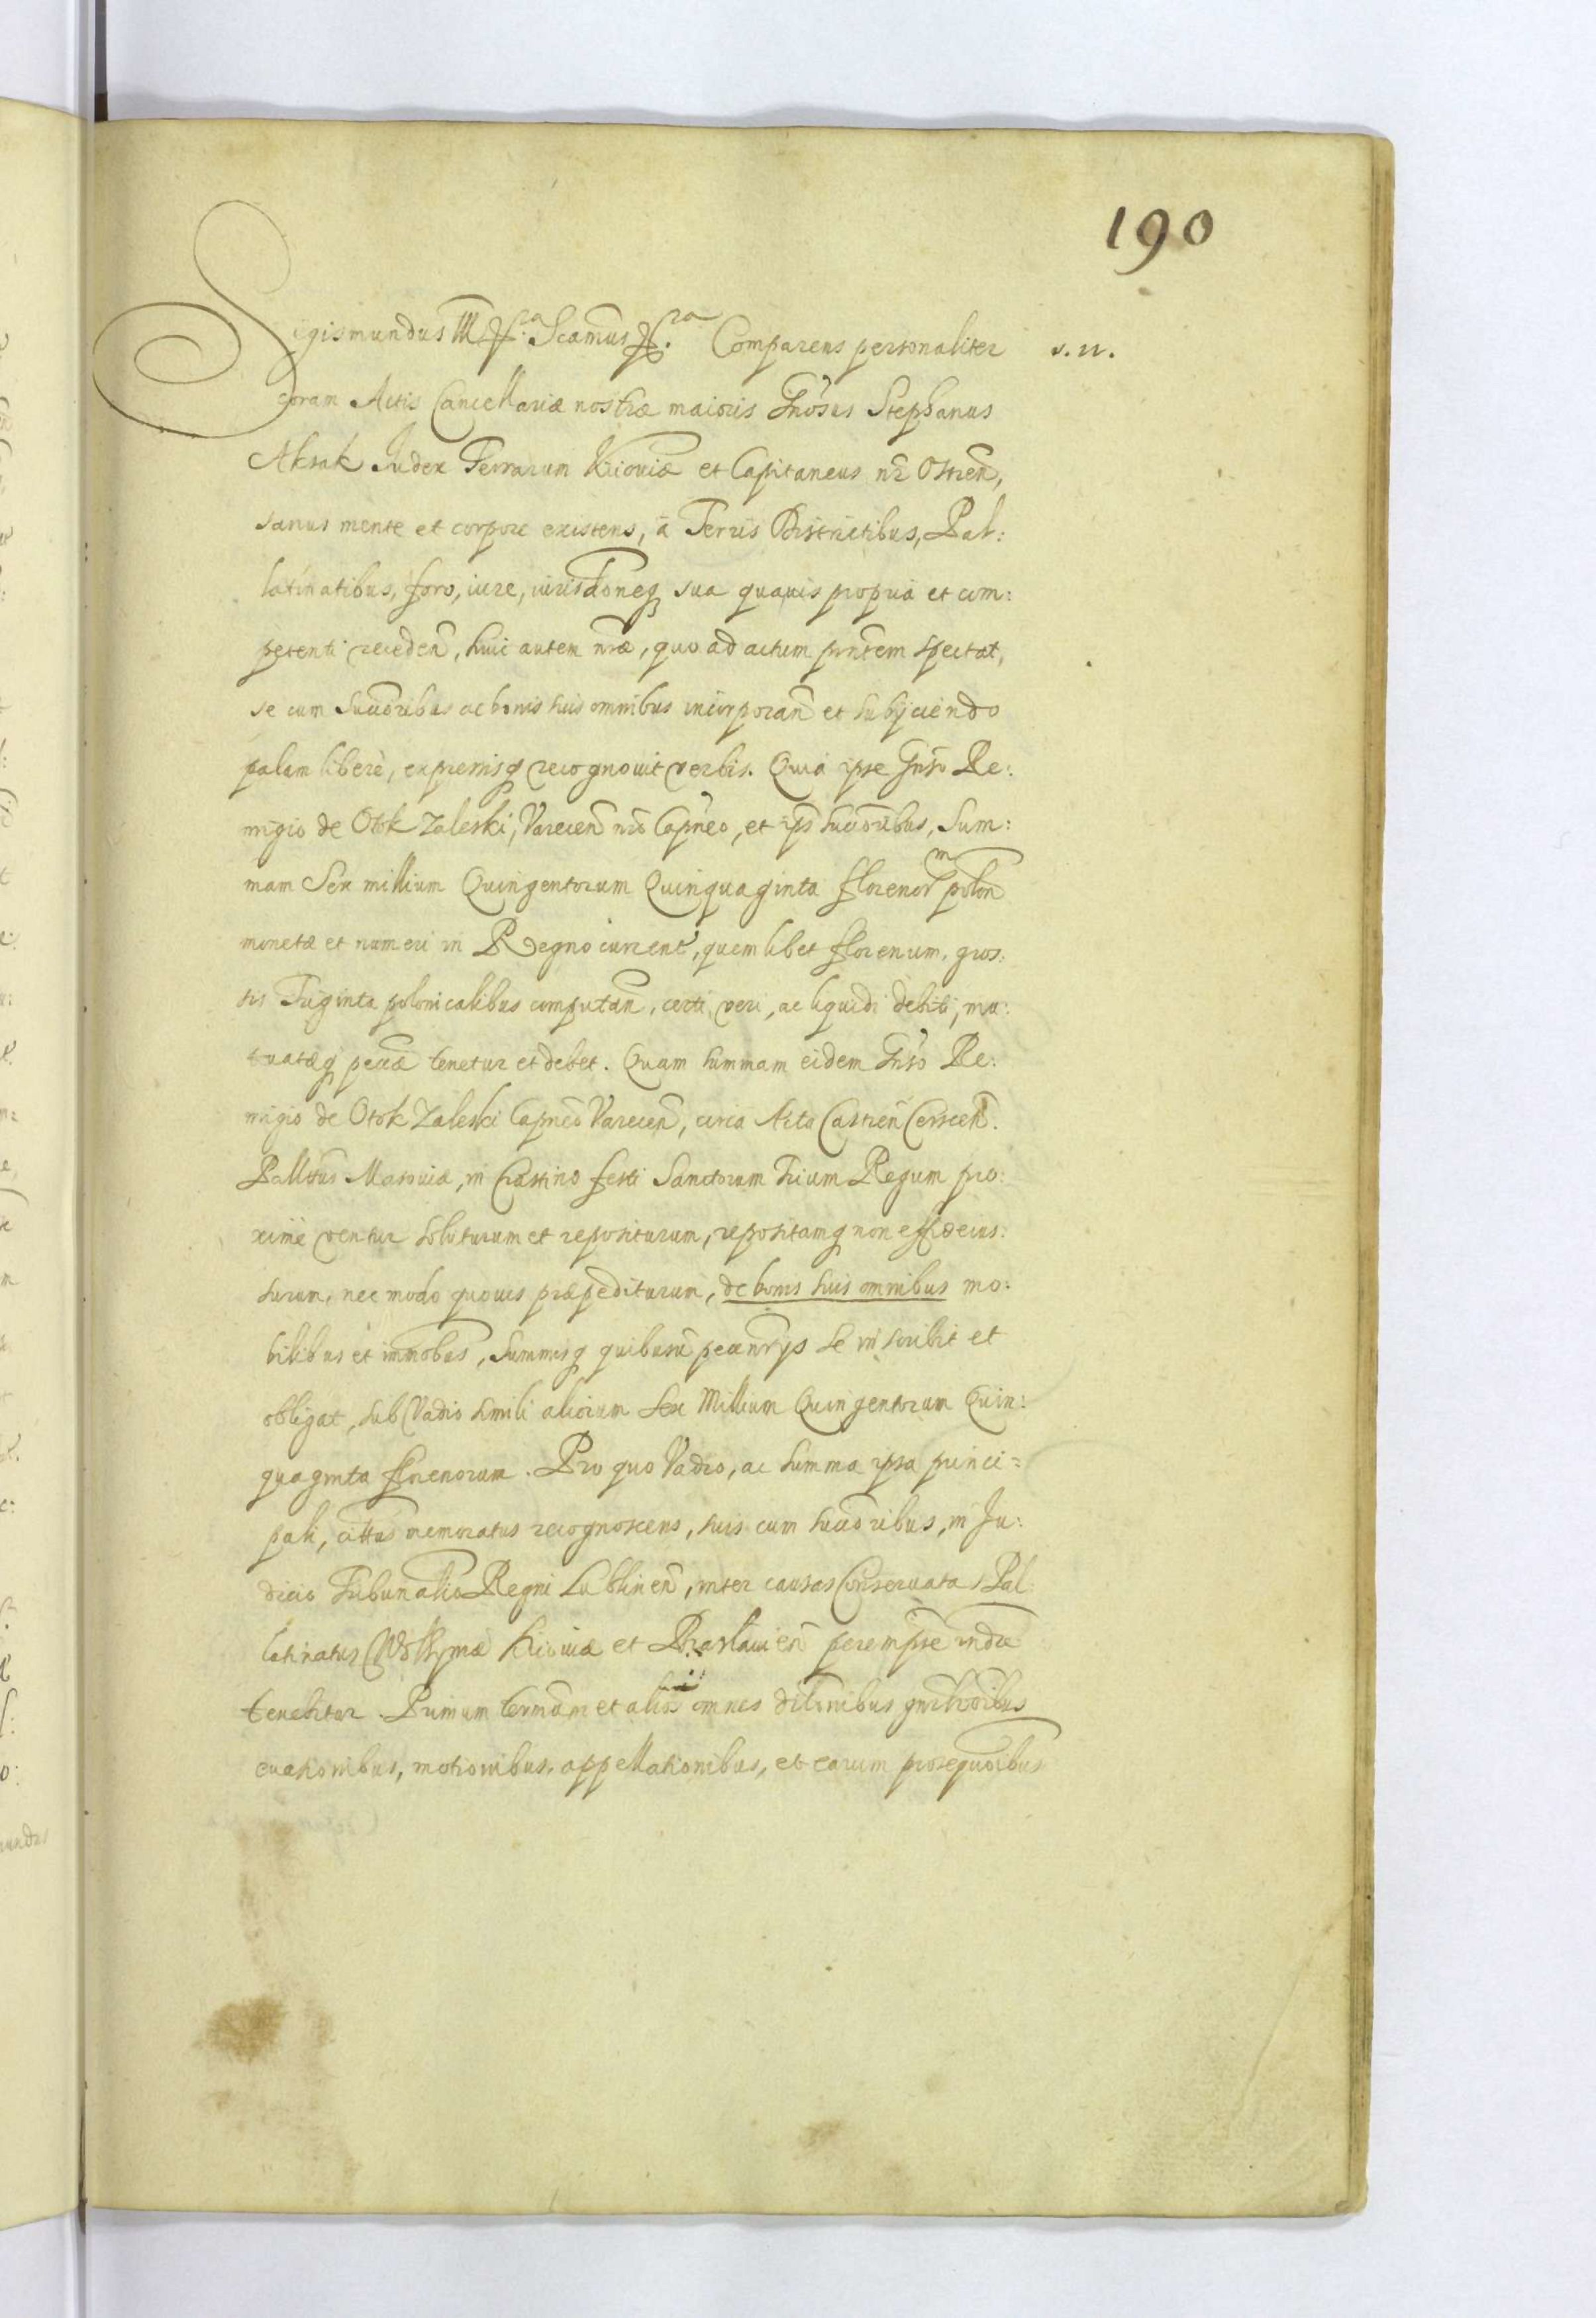 190
Sigismundus III etc. ra Scamus etc. ra Comparens personaliter s. n.
coram Actis Cancellariæ nostræ maioris Gnosus Stephanus
Aksak Judex Terrarum Kiiouiæ et Capitaneus nr Ostren,
sanus mente et corpore existens, à Terris Districtibus, Pal:
latinatibus, foro, iure, iurisdoneq sua quauis propria et com:
petenti receden, huic autem nræ, quo ad actum pntem spectat,
se cum succoribus ac bonis suis omnibus incorporan et subijciendo
palam liberè, expressisq recognouit verbis. Quia ipse Gnso Re:
migio de Otok Zaleski, Varecen nro Capneo, et ips succoribus, Sum:
mam Sex millium Quingentorum Quinquaginta florenorm polon
monetæ et numeri in Regno current, quemlibet florenum, gros:
sis Triginta polonicalibus computan, certi, veri, ac liquidi debiti, mu:
tuatæq pecciæ tenetur et debet. Quam summam eidem Gnso Re:
migio de Otok Zaleski Capneo Varecen, circa Acta Castren Cerscen.
Pallttus Masouiæ, in Crastino festi Sanctorum Trium Regum pro:
xime ventur soluturum et repositurum, repositamq non
surum, nec modo quouis præpediturum, de bonis suis omnibus mo:
bilibus et immobus, Summisq quibusu pecunrys se inscribit et
obligat, sub Vadio simili aliorum Sex Millium Quingentorum Quin:
quaginta florenorum. Pro quo Vadio, ac summa ipsa princi=
pali, cittus memoratus recognoscens, suis cum succoribus, in Ju:
dicio Tribunalis Regni Lublinen, inter causas Conseruata Pal:
latinatus Wolhyniæ Kiiouiæ et Braslauien perempte indre
tenebitur. Primum termum et alios omnes dilonibus
euationibus, motionibus, appellationibus, et earum prosequoibus